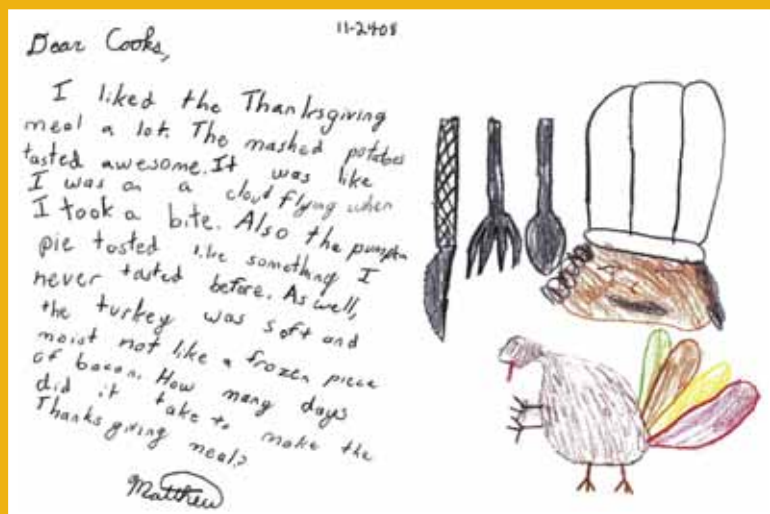 11-2408
Dear Cooks,
I liked the Thanksgiving
meal a lot. The mashed potatoes
tasted awesome. It was like
I was on a cloud flying when
I took a bite. Also the pumpkin
pie tasted like something I
never tasted before. As well,
the turkey was soft and
moist not like a frozen piece
of bacon. How many days
did it take to make the
Thanksgiving meal?
Matthew